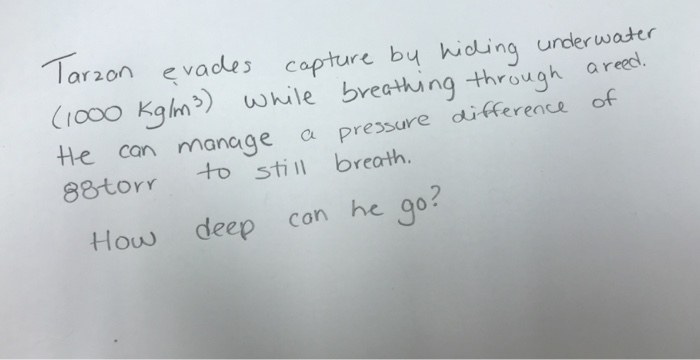 Tarzon evades capture by hiding underwater
(1000 Kg/m³) while breathing through a reed.
He can manage a pressure difference of
88torr to still breath.
How deep can he go?